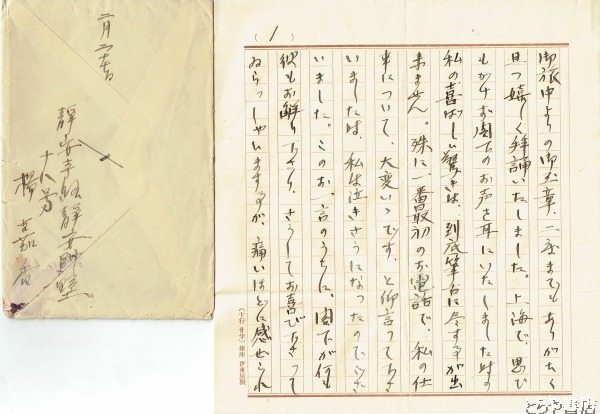 二月二十五日
静安寺路静安別墅
十八号
楊嘉
(1)
御旅中よりの御玉章、二度までもありがたく
且つ嬉しく拝誦いたしました。上海で、思ひ
もかけず閣下のお声を耳にいたしました時の
私の喜ばしい驚きは、到底筆舌に尽す事が出
来ません。殊に一番最初のお電話で、私の仕
事について、大変いゝです、と仰言って下さ
いましたは、私は泣きさうになったのでござ
いました。このお一言のうちに、閣下が何も
彼もお解り下さり、さうしてお喜び下さって
ゐらっしゃいます事が、痛いほどに感ぜられ
(十行廿字) 銀座 伊東屋製
とうや書店